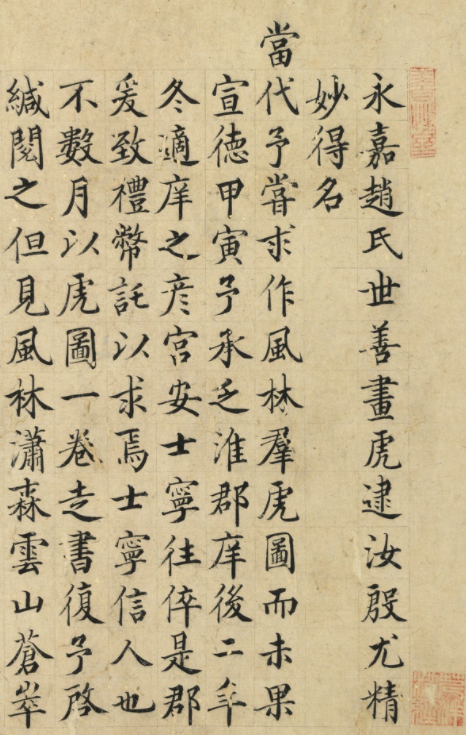 永嘉趙氏世善畫虎逮汝殷尤精
妙得名
當代予嘗求作風林羣虎圖而未果
宣德甲寅予承乏淮郡庠後二年
冬適庠之彦宮安士寧往倅是郡
爰致禮幣託以求焉士寧信人也
不數月以虎圖一卷走書復予啓
緘閱之但見風林瀟森雲山蒼崒